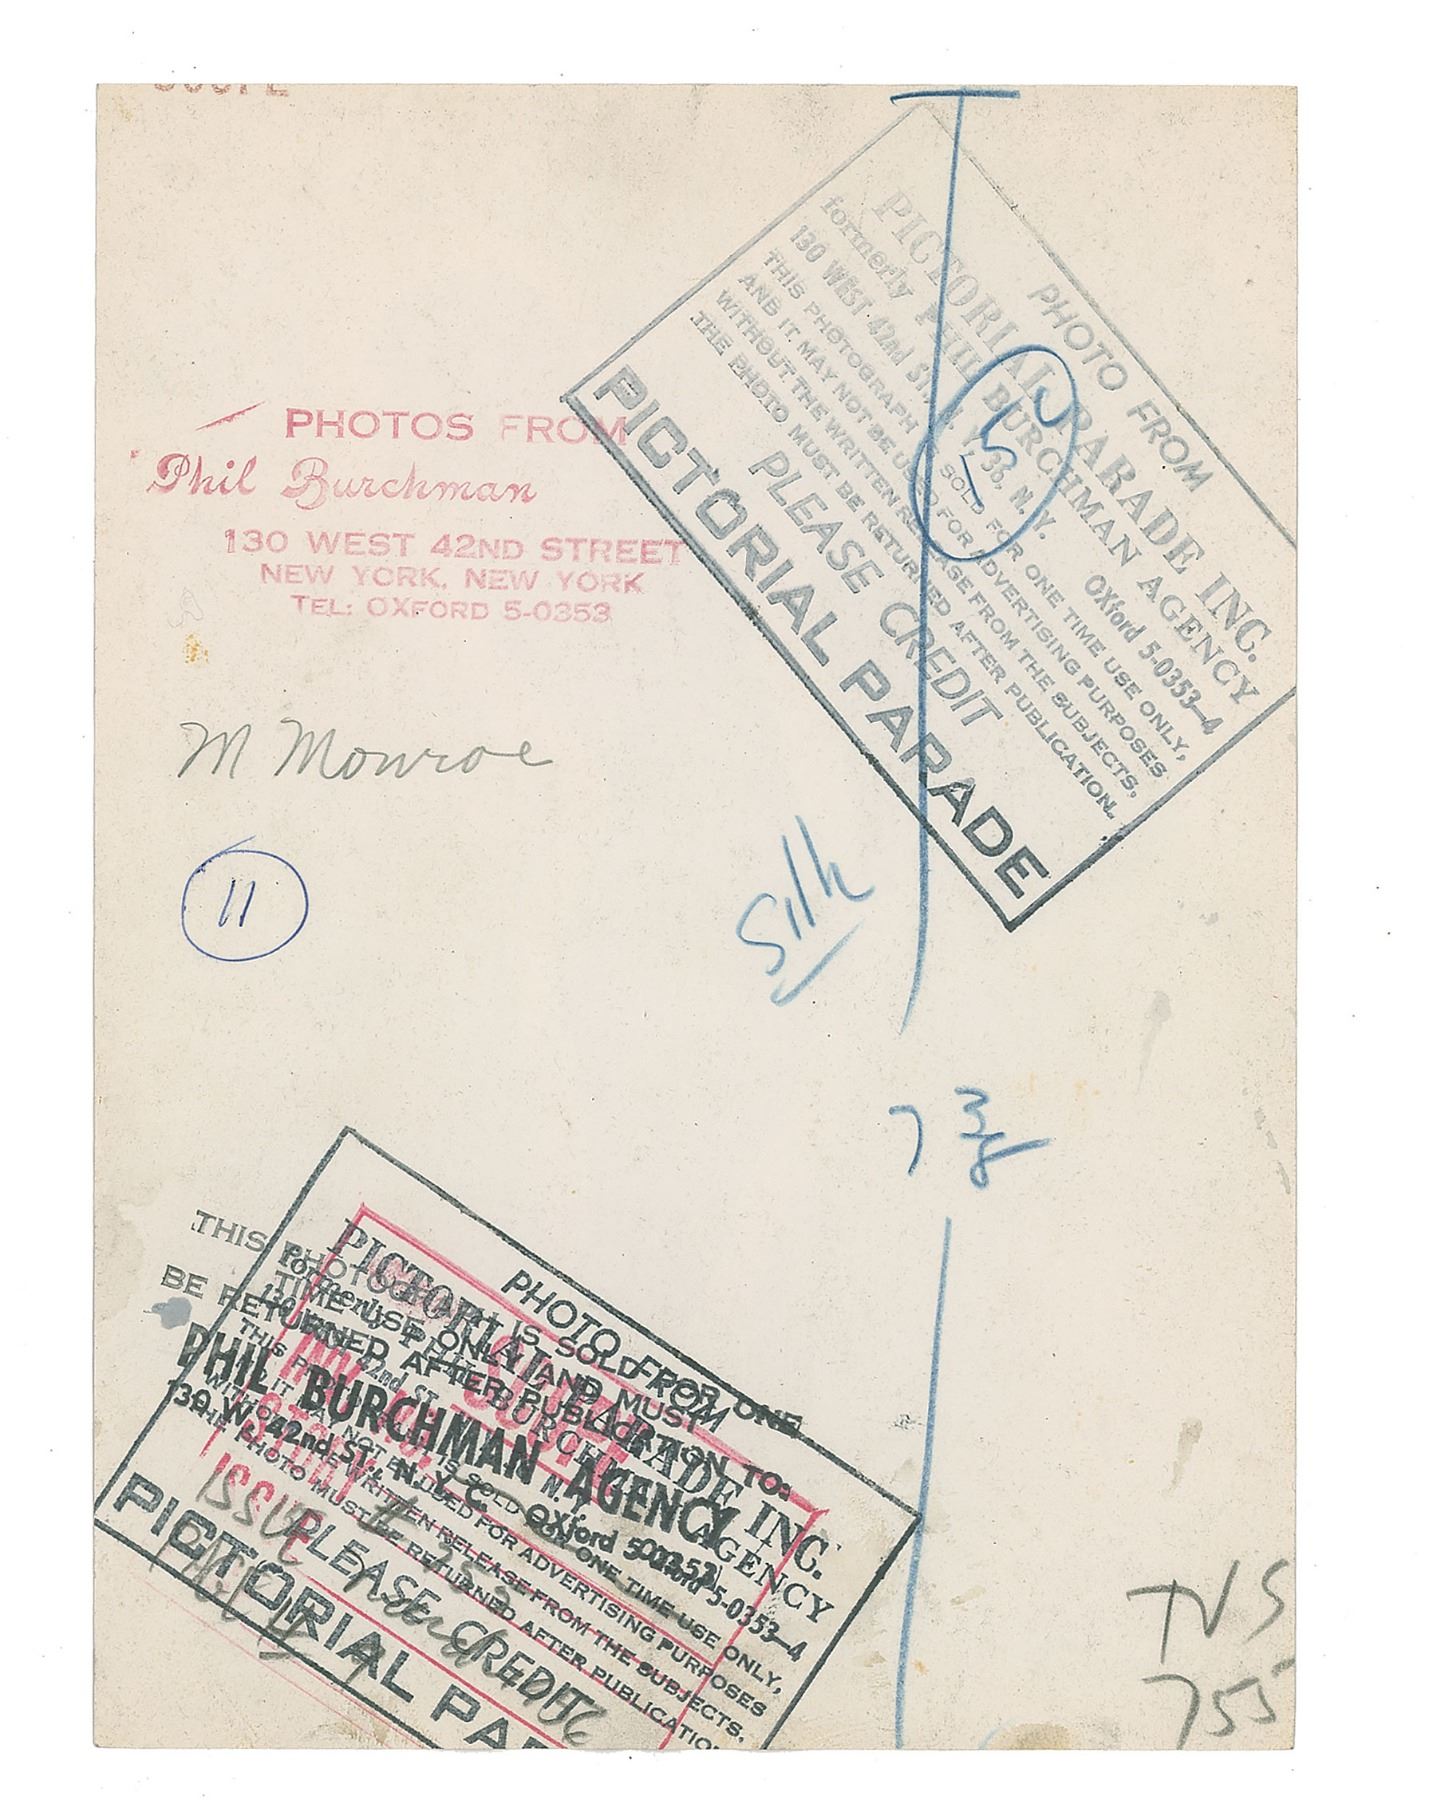 PHOTO FROM
PICTORIAL PARADE INC.
formerly PHIL BURCHMAN AGENCY
130 WEST 42nd ST., N. Y. 36, N. Y. OXford 5-0353-4
THIS PHOTOGRAPH IS SOLD FOR ONE TIME USE ONLY,
AND IT MAY NOT BE USED FOR ADVERTISING PURPOSES
WITHOUT THE WRITTEN RELEASE FROM THE SUBJECTS.
THE PHOTO MUST BE RETURNED AFTER PUBLICATION.
PLEASE CREDIT
PICTORIAL PARADE
5
PHOTOS FROM
Phil Burchman
130 WEST 42ND STREET
NEW YORK, NEW YORK
TEL: OXFORD 5-0353
M Monroe
11
Silk
7 3/8
THIS PHOTOGRAPH IS SOLD FOR ONE
TIME USE ONLY AND MUST
BE RETURNED AFTER PUBLICATION TO:
PHIL BURCHMAN AGENCY
130 W. 42nd ST., N.Y.C. OXford 5-0353
PHOTO FROM
PICTORIAL PARADE INC.
formerly PHIL BURCHMAN AGENCY
130 WEST 42nd ST. N.Y. OXford 5-0353-4
THIS PHOTOGRAPH IS SOLD FOR ONE TIME USE ONLY,
AND IT MAY NOT BE USED FOR ADVERTISING PURPOSES
WITHOUT THE WRITTEN RELEASE FROM THE SUBJECTS.
THE PHOTO MUST BE RETURNED AFTER PUBLICATION
PLEASE CREDIT
PICTORIAL PA
ISSUE
STORY
TVS
755